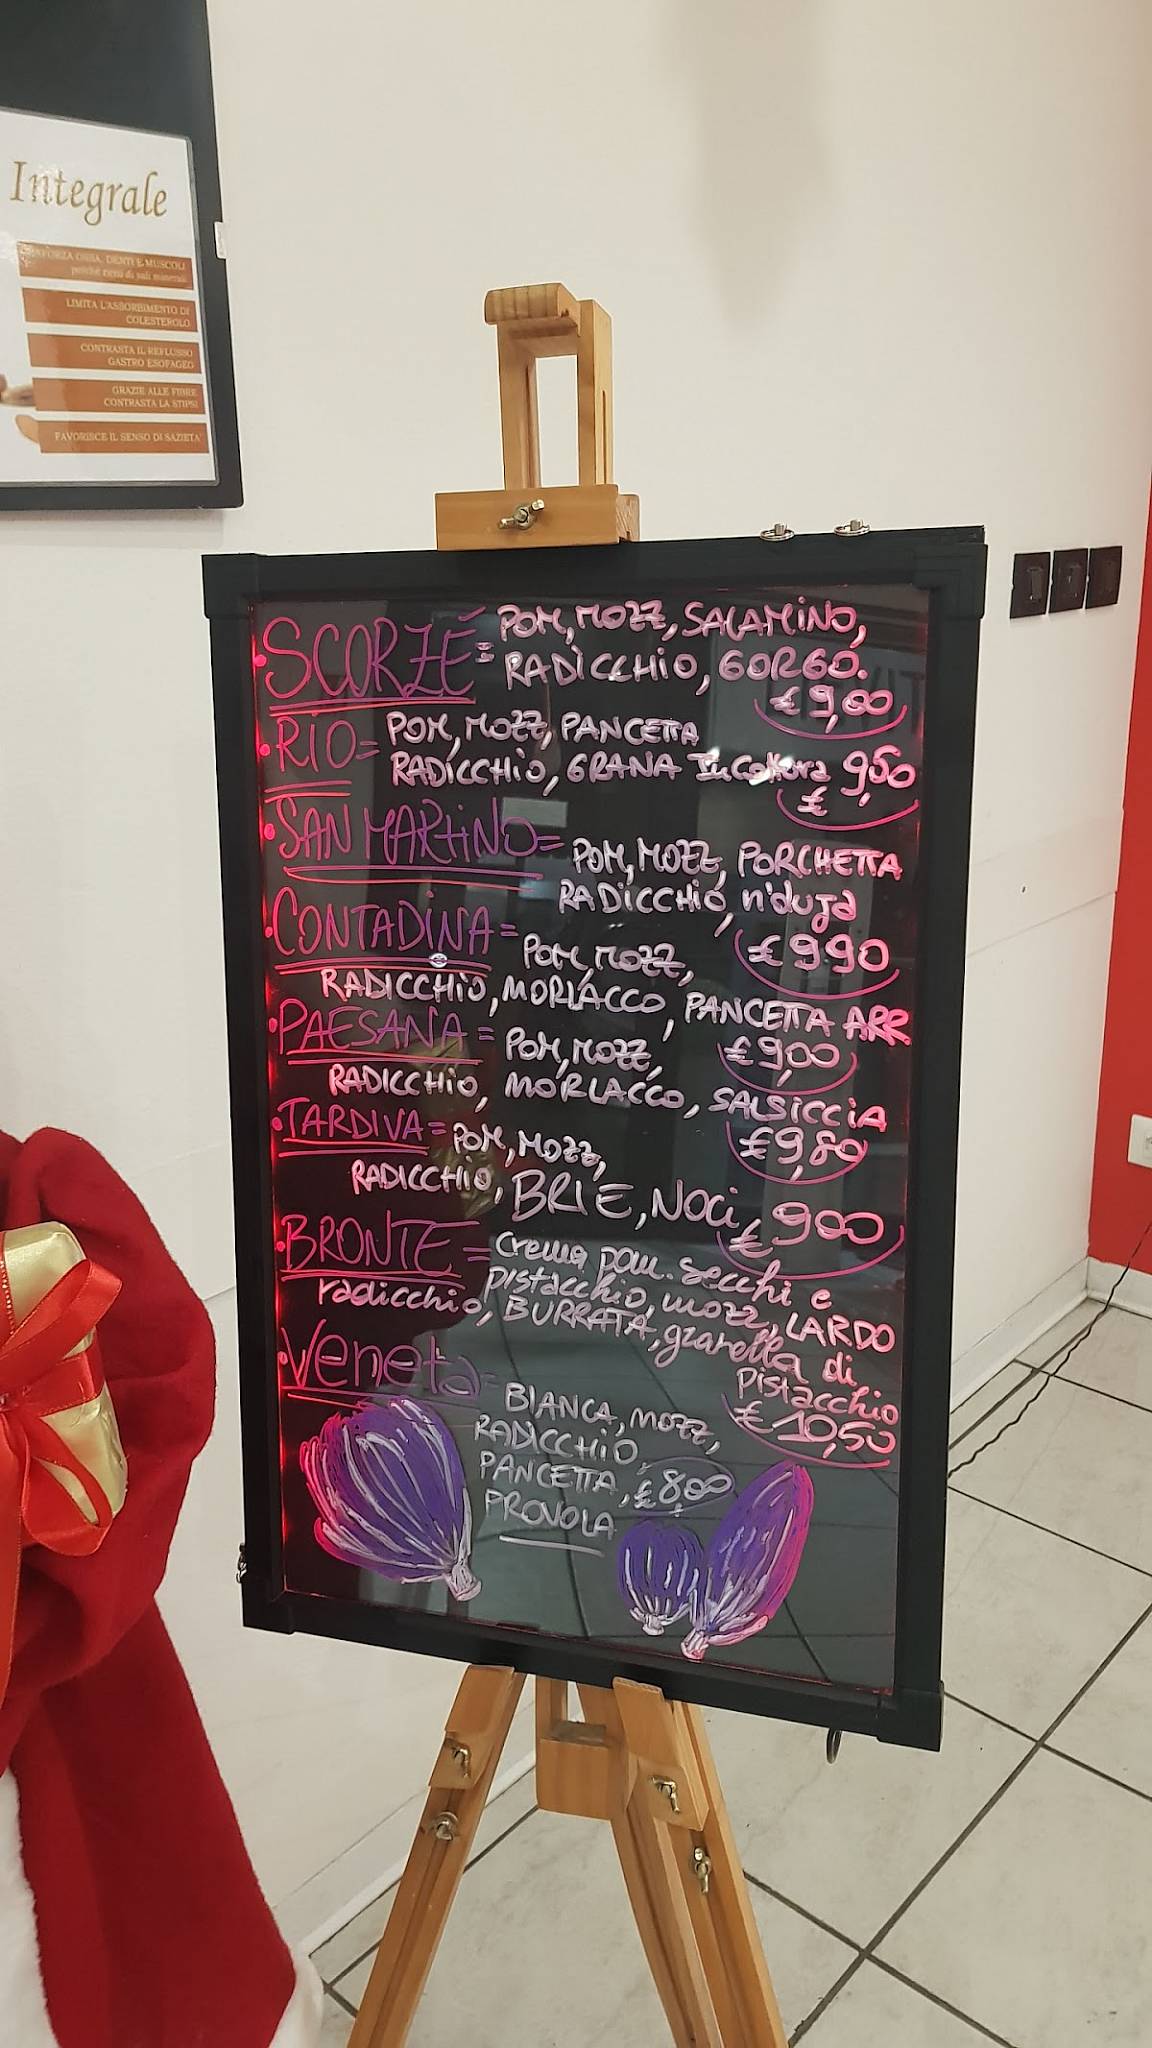 Integrale
RINFORZA OSSA, DENTI E MUSCOLI
perchè ricca di sali minerali
LIMITA L'ASSORBIMENTO DI
COLESTEROLO
CONTRASTA IL REFLUSSO
GASTRO ESOFAGEO
GRAZIE ALLE FIBRE
CONTRASTA LA STIPSI
FAVORISCE IL SENSO DI SAZIETA'
SCORZÉ = POM, MOZZ, SALAMINO,
RADICCHIO, GORGO.
€ 9,00
RIO = POM, MOZZ, PANCETTA
RADICCHIO, GRANA In Cottura 9,50
€
SAN MARTINO = POM, MOZZ, PORCHETTA
RADICCHIO, n'duja
€ 9,90
CONTADINA = POM, MOZZ,
RADICCHIO, MORLACCO, PANCETTA ARR
€ 9,00
PAESANA = POM, MOZZ,
RADICCHIO, MORLACCO, SALSICCIA
€ 9,80
TARDIVA = POM, MOZZ,
RADICCHIO, BRIE, NOCI, € 9,00
BRONTE = Crema pom. secchi e
pistacchio, mozz, LARDO
radicchio, BURRATA, granella di
Pistacchio
€ 10,50
Veneta = BIANCA, MOZZ,
RADICCHIO,
PANCETTA, € 8,00
PROVOLA